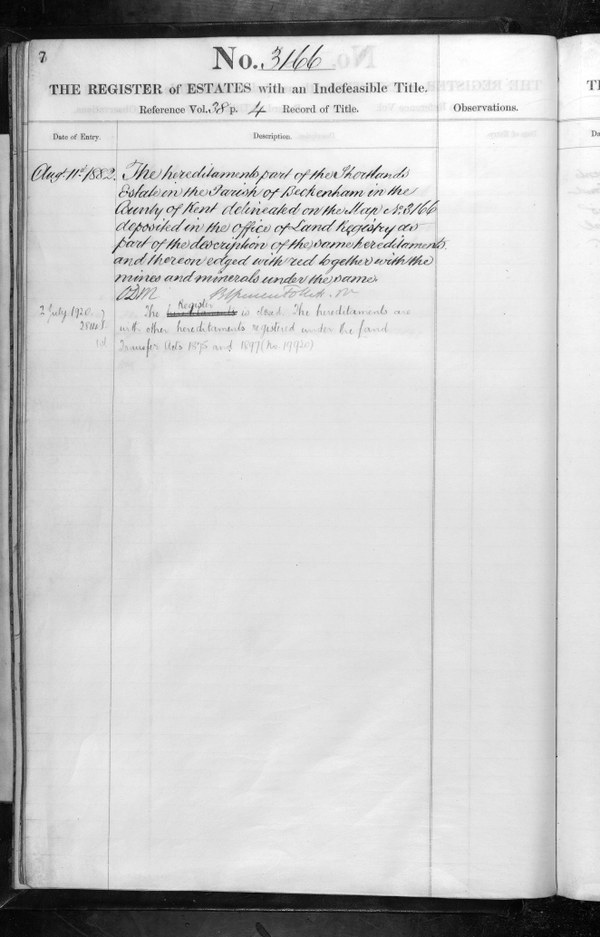 7
No. 3166
THE REGISTER of ESTATES with an Indefeasible Title.
Reference Vol. 38 p. 4 Record of Title.
Observations.
Date of Entry.
Description.
Aug. 11th 1882. The hereditaments part of the Shortlands
Estate in the Parish of Beckenham in the
County of Kent delineated on the Map No. 3166
deposited in the office of Land Registry as
part of the description of the same hereditaments
and thereon edged with red together with the
mines and minerals under the same.
2 July 1920
The Register is closed. The hereditaments are
with other hereditaments registered under the Land
Transfer Acts 1875 and 1897 (No.